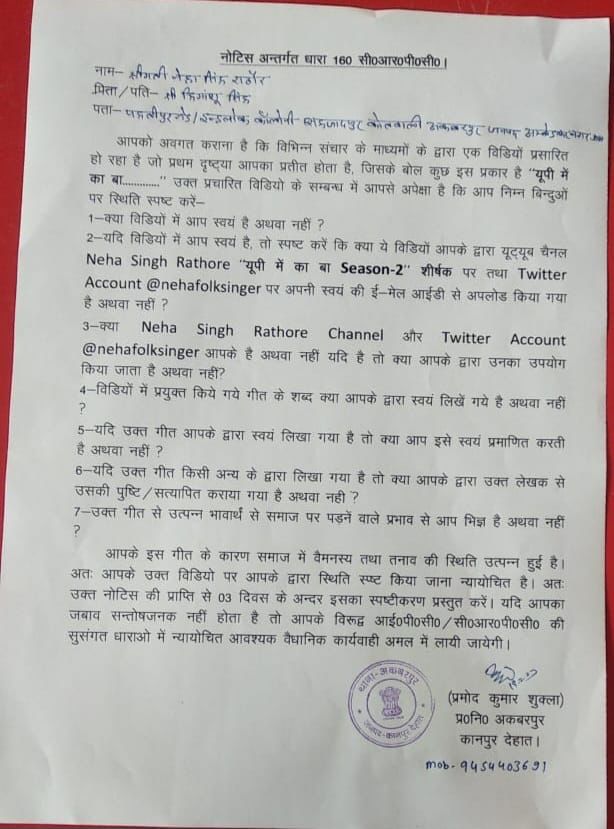 नोटिस अन्तर्गत धारा 160 सी०आर०पी०सी०।
नाम– श्रीमती नेहा सिंह राठौर
पिता/पति– श्री हिमांशु सिंह
पता– कॉलोनी कोतवाली अकबरपुर जनपद अम्बेडकरनगर
आपको अवगत कराना है कि विभिन्न संचार के माध्यमों के द्वारा एक विडियों प्रसारित
हो रहा है जो प्रथम दृष्टया आपका प्रतीत होता है, जिसके बोल कुछ इस प्रकार है "यूपी में
का बा............." उक्त प्रचारित विडियो के सम्बन्ध में आपसे अपेक्षा है कि आप निम्न बिन्दुओं
पर स्थिति स्पष्ट करें–
1–क्या विडियों में आप स्वयं है अथवा नहीं ?
2–यदि विडियों में आप स्वयं है, तो स्पष्ट करें कि क्या ये विडियों आपके द्वारा यूट्यूब चैनल
Neha Singh Rathore "यूपी में का बा Season-2" शीर्षक पर तथा Twitter
Account @nehafolksinger पर अपनी स्वयं की ई–मेल आईडी से अपलोड किया गया
है अथवा नहीं ?
3–क्या Neha Singh Rathore Channel और Twitter Account
@nehafolksinger आपके है अथवा नहीं यदि है तो क्या आपके द्वारा उनका उपयोग
किया जाता है अथवा नहीं?
4–विडियों में प्रयुक्त किये गये गीत के शब्द क्या आपके द्वारा स्वयं लिखें गये है अथवा नहीं
?
5–यदि उक्त गीत आपके द्वारा स्वयं लिखा गया है तो क्या आप इसे स्वयं प्रमाणित करती
है अथवा नहीं ?
6–यदि उक्त गीत किसी अन्य के द्वारा लिखा गया है तो क्या आपके द्वारा उक्त लेखक से
उसकी पुष्टि/सत्यापित कराया गया है अथवा नही ?
7–उक्त गीत से उत्पन्न भावार्थ से समाज पर पड़नें वाले प्रभाव से आप भिज्ञ है अथवा नहीं
?
आपके इस गीत के कारण समाज में वैमनस्य तथा तनाव की स्थिति उत्पन्न हुई है।
अतः आपके उक्त विडियो पर आपके द्वारा स्थिति स्ष्ट किया जाना न्यायोचित है। अतः
उक्त नोटिस की प्राप्ति से 03 दिवस के अन्दर इसका स्पष्टीकरण प्रस्तुत करें। यदि आपका
जबाव सन्तोषजनक नहीं होता है तो आपके विरूद्ध आई०पी०सी०/सी०आर०पी०सी० की
सुसंगत धाराओ में न्यायोचित आवश्यक वैधानिक कार्यवाही अमल में लायी जायेगी।
थाना-अकबरपुर
जनपद-कानपुर देहात
(प्रमोद कुमार शुक्ला)
प्र०नि० अकबरपुर
कानपुर देहात।
mob- 9454403691